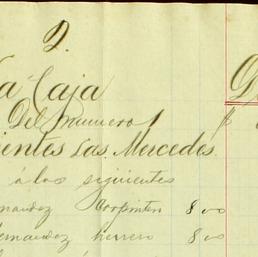 2.
a Caja D
Del Numero 1 $
ientes Las Mercedes
á los siguientes
nandez Carpintero 8 00
ernandez herrero 8 00